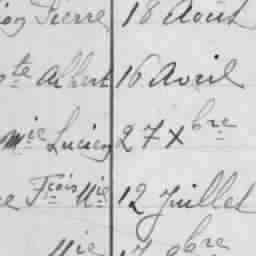 Pierre 18 Août
Albert 16 Avril
Lucien 27 Xbre
Fçois Mie 12 Juillet
Mie bre